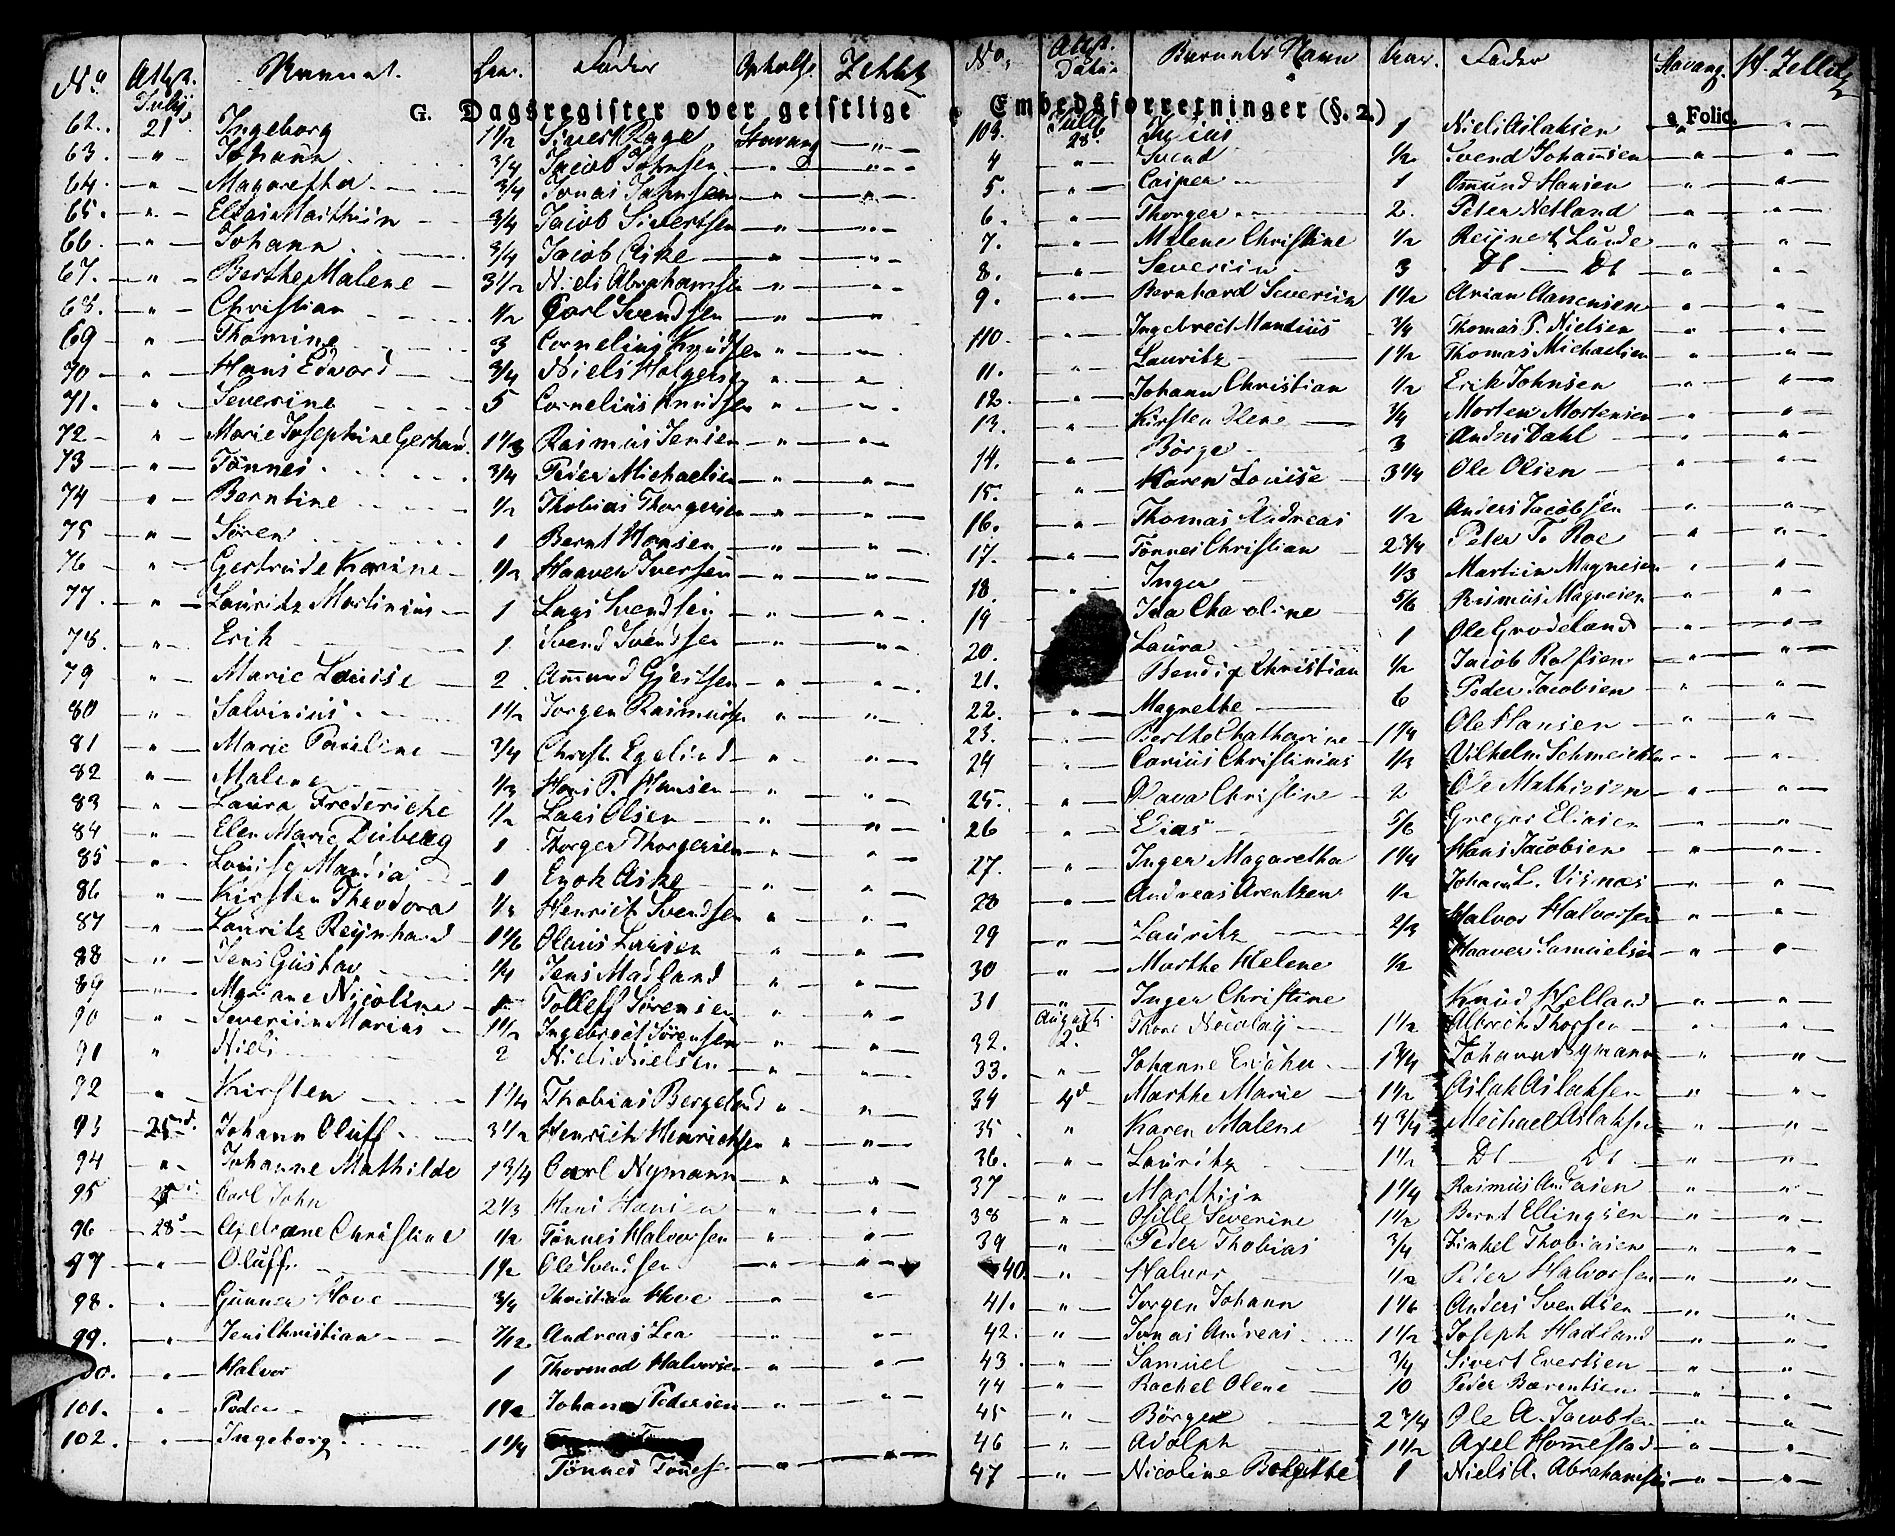 No Attest. Navnet. Aar. Fader Opholdst.
G. Dagsregister over geistlige
62. July 21 Ingeborg 1 1/2 Sivert Rage Stavang — " —
63. " Johann 3/4 Jacob Johnsen " "
64. " Magaretha 3/4 Jonas Johnsen " "
65. " Elias Matthiin 3/4 Jacob Sivertsen " "
66. " Johann 3/4 Jacob Aske " "
67. " Berthe Malene 3 1/2 Niels Abrahamsen " "
68. " Christian 1/2 Carl Svendsen " "
69 " Thomine 3 Cornelius Knudsen " "
70 " Hans Edvard 3/4 Niels Holgersen " "
71. " Severine 5 Cornelius Knudsen " "
72 " Marie Josephine Gerhard 1 1/3 Rasmus Jensen " "
73 " Tönnes 3/4 Peder Michaelsen " "
74 " Berntine 1/2 Thobias Thorgersen " "
75 " Sören 1 Bernt Hansen " "
76 " Gertrude Karine 1/2 Haaver Iversen " "
77. " Lauritz Martinius 1 Lars Svendsen " "
78. " Erik 1 Svend Svendsen " "
79 " Marie Louise 2 Amund Gjertsen " "
80 " Salvinius 1 1/2 Jorgen Rasmussen " "
81 " Marie Pauline 3/4 Christ. Egelund " "
82 " Malene 1/3 Hans P. Hansen " "
83 " Laura Frederiche 1/2 Lars Olsen " "
84 " Elen Marie 1 Thorger Thorgersen " "
85 " Louise 1 Enok Aske " "
86 " Kirsten Theodora 1/3 Henrich Svendsen " "
87 " Lauritz Reijnhard 1 1/6 Olaus Larsen " "
88 " Jens Gustav 1/4 Jens Madland " "
89 " Mariane Nicoline 1 Tolleff Sörensen " "
90 " Severiin Marius 1 1/2 Ingebrect Sörensen " "
91 " Niels 2 Niels Nielsen " "
92 " Kirsten 1 1/4 Thobias Bergeland " "
93 25 Johann Oluff 3 1/2 Henrich Henrichsen " "
94 " Johanne Mathilde 1 3/4 Carl Nymann " "
95 Carl John 2 1/3 Hans Hansen " "
96 28 Christine 1/2 Tönnes Halvorsen " "
97 " Oluff 1 1/2 Ole Svendsen " "
98. " Gunner Hove 3/4 Christian Hove " "
99. " Jens Christian 7/12 Andreas Lea " "
100. " Halvor 1 Thormod Halvorsen " "
101. " Peder 1 1/2 Johan Pedersen " "
102. " Ingeborg 1 1/4 Tönnes " "
No. Attest. Datum Barnets Navn Aar. Fader Stavang.
Embedsforretninger (§. 2.) a Folio.
103. July 28. Julius 1 Niels Aslaksen " "
4 " Svend 1/2 Svend Johannsen " "
5. " Casper 1 Omund Hansen " "
6. " Thorger 2. Peter Netland " "
7. " Malene Christine 1/2 Reijnert Lunde " "
8. " Severiin 3 Dt — Dt " "
9. " Bernhard Severiin 1 1/2 Arian Aanensen " "
110. " Ingebrect Mandius 3/4 Thomas P. Nielsen " "
11. " Lauritz 1 1/2 Thomas Michaelsen " "
12. " Johann Christian 1/2 Erik Johnsen " "
13. " Kirsten Olene 3/4 Morten Mortensen " "
14. " Börge 3 Andres Dahl " "
15. " Karen Louise 3 1/4 Ole Olsen " "
16. " Thomas Andreas 1/2 Anders Jacobsen " "
17. " Tönnes Christian 2 3/4 Peter T. Roe " "
18. " Inger 1/3 Martin Magnesen " "
19 Ida Charoline 5/6 Rasmus Magnesen " "
20. Laura 1 Ole Grodeland " "
21. Bendix Christian 1/2 Jacob Rolfsen " "
22. " Magnethe 6 Peder Jacobsen " "
23. " Berthe Chatharine 1 1/4 Ole Hansen " "
24 " Carius Christinius 1/3 Vilhelm " "
25. " Christine 2 Ole Mathiesen " "
26 " Elias 5/6 Gregor Eliasen " "
27. " Inger Magaretha 1 1/4 Hans Jacobsen " "
28 " Andreas Arentzen 1/2 Johan L. Visnæs " "
29 " Lauritz 2/3 Halvor Halvorsen " "
30 " Marthe Helene 1/2 Haaver Samuelsen " "
31 " Inger Christine Knud " "
32. August 2. Thore Nicolay 1 1/2 Albrect Thorsen " "
33. " Johanne 1 3/4 Johann Nymann " "
34 4d Marthe Marie 1 1/2 Aslak Aslaksen " "
35 " Karen Malene 4 3/4 Michael Aslaksen " "
36. " Lauritz 1 1/2 Dt — Dt " "
37 " Marthiin 1 1/4 Rasmus " "
38 " Osille Severine 1 1/2 Bernt Ellingsen " "
39 " Peder Thobias 3/4 Zinkel Thobiasen " "
40. " Halvor 1/2 Peder Halvorsen " "
41. " Jorgen Johann 1 1/6 Anders Svendsen " "
42. " Jonas Andreas 1 1/2 Joseph Hadland " "
43. " Samuel 3/4 Sivert Evertsen " "
44 " Rachel Olene 10 Peder Barentsen " "
45 " Börge 2 3/4 Ole A. Jacobsen " "
46 " Adolph 1 1/2 Axel Homestad " "
47 " Nicoline 1 Niels A. Abrahamsen " "